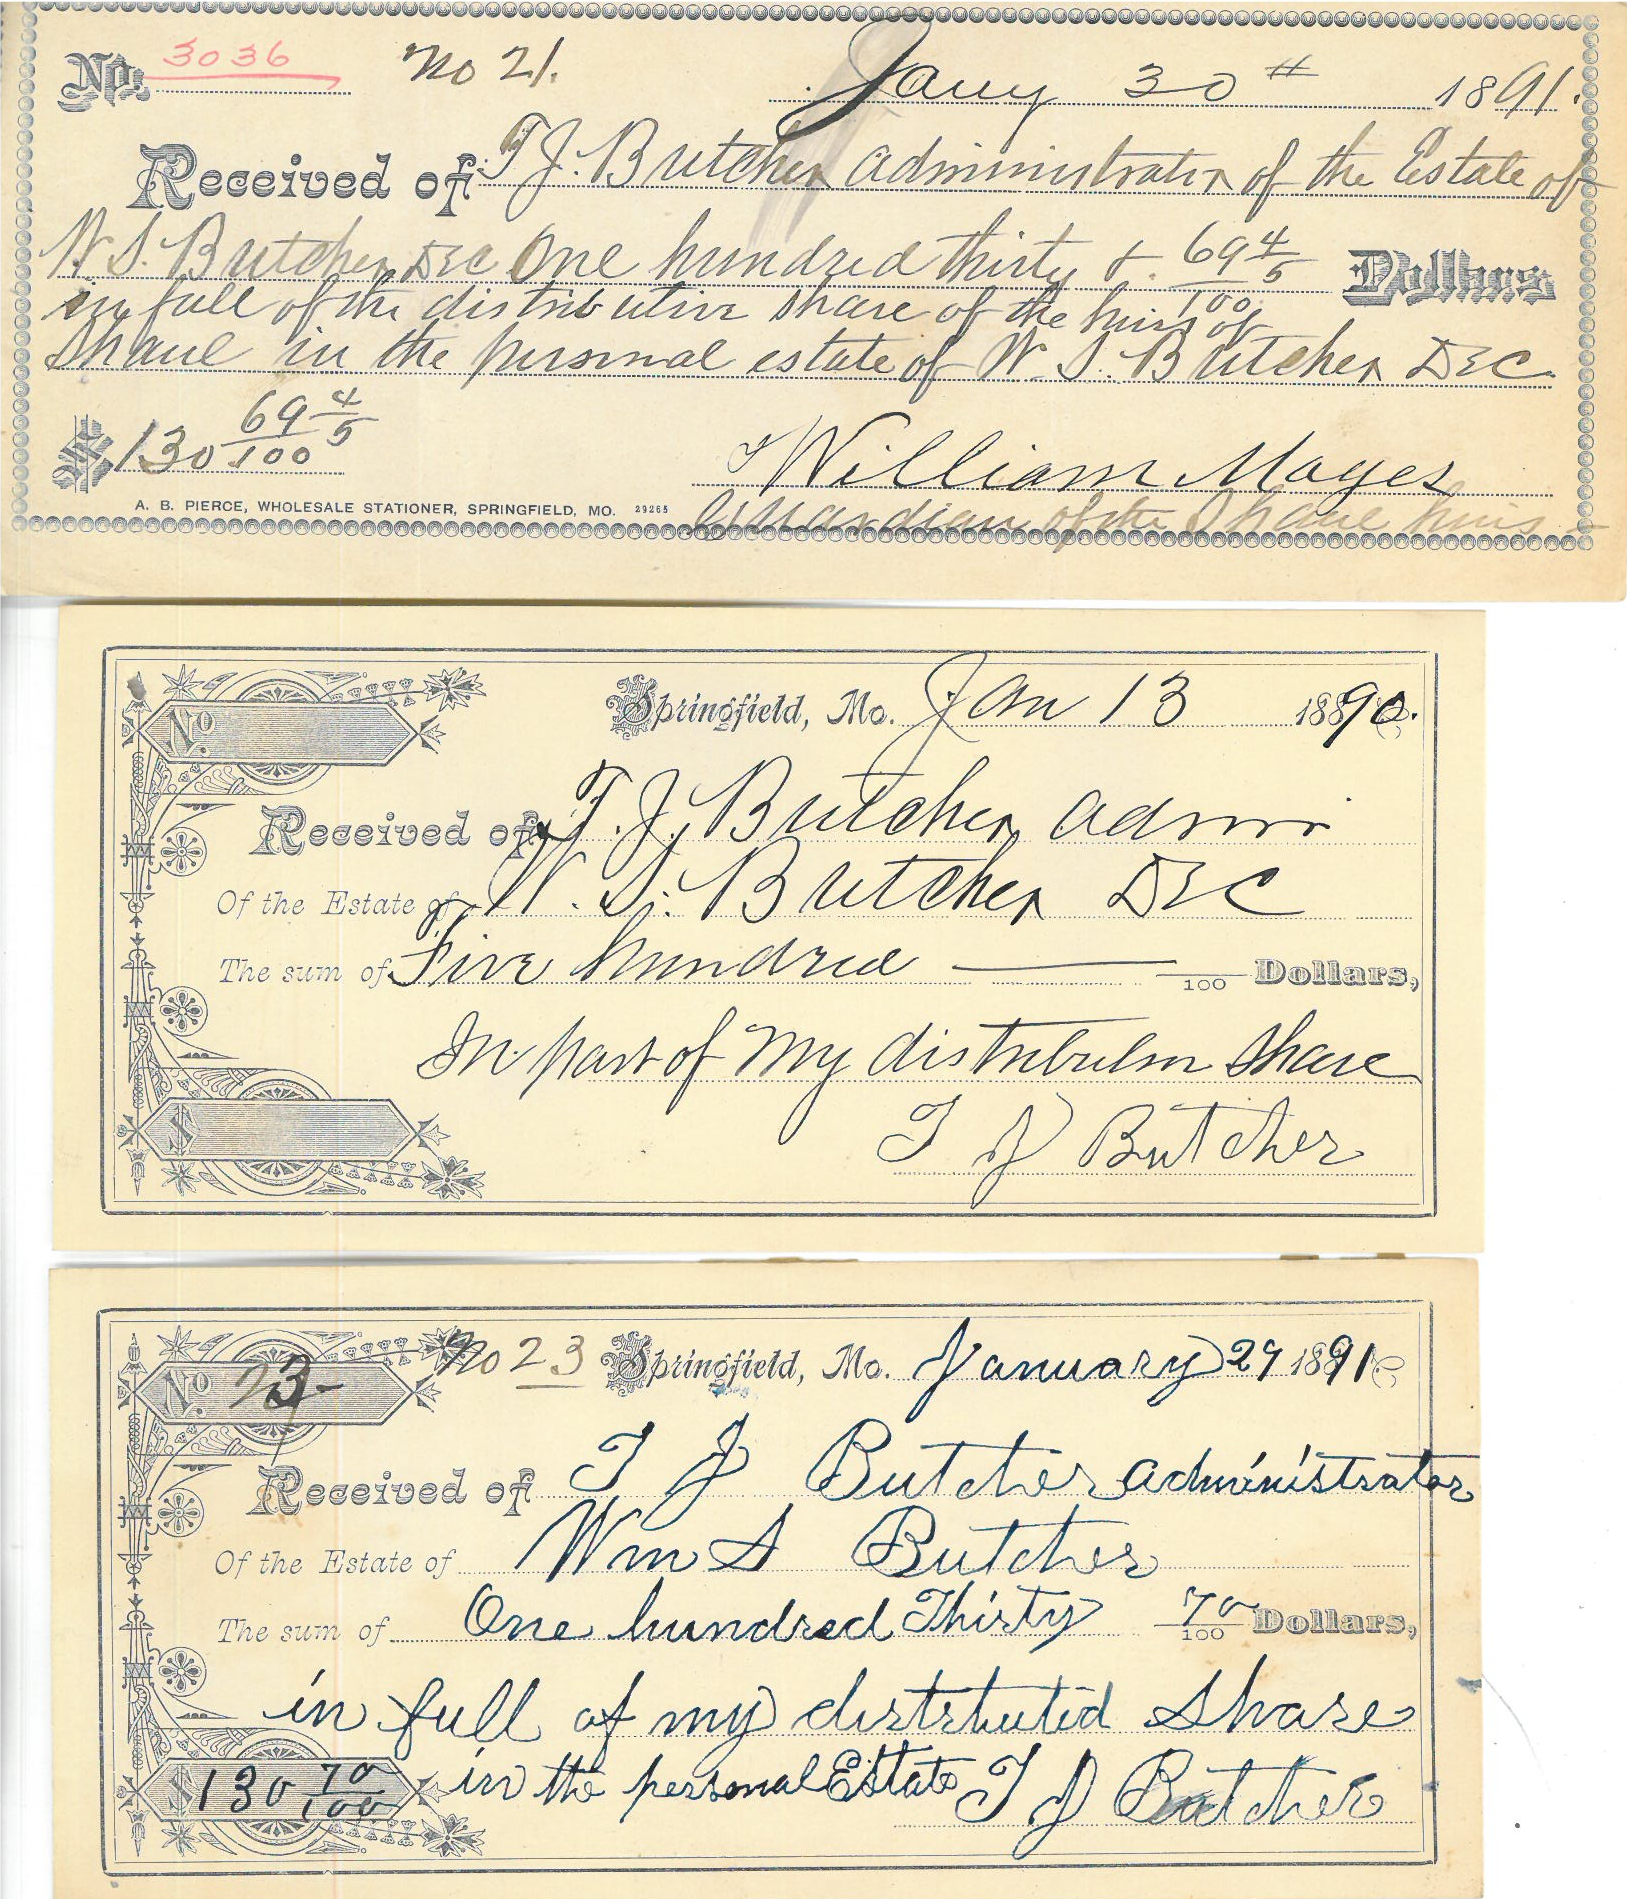 No. 3036 No 21. Jany 30th 1891.
Received of T. J. Butcher Administrator of the Estate of
W. S. Butcher Dec One hundred thirty & 69 4/5/100 Dollars
in full of the distributive share of the heirs of
Shaul in the personal estate of W. S. Butcher Dec.
$130 69 4/5/100
William Mayes
Guardian of the Shaul heirs
A. B. PIERCE, WHOLESALE STATIONER, SPRINGFIELD, MO. 29265
No. Springfield, Mo. Jan 13 1890.
Received of T. J. Butcher Admr
Of the Estate of W. S. Butcher Dec
The sum of Five hundred /100 Dollars,
In part of my share
$ T J Butcher
No. 23 No 23 Springfield, Mo. January 29 1891
Received of T J Butcher administrator
Of the Estate of Wm S Butcher
The sum of One hundred Thirty 70/100 Dollars,
in full of my distributed share
$130 70/100 in the personal Estate T J Butcher